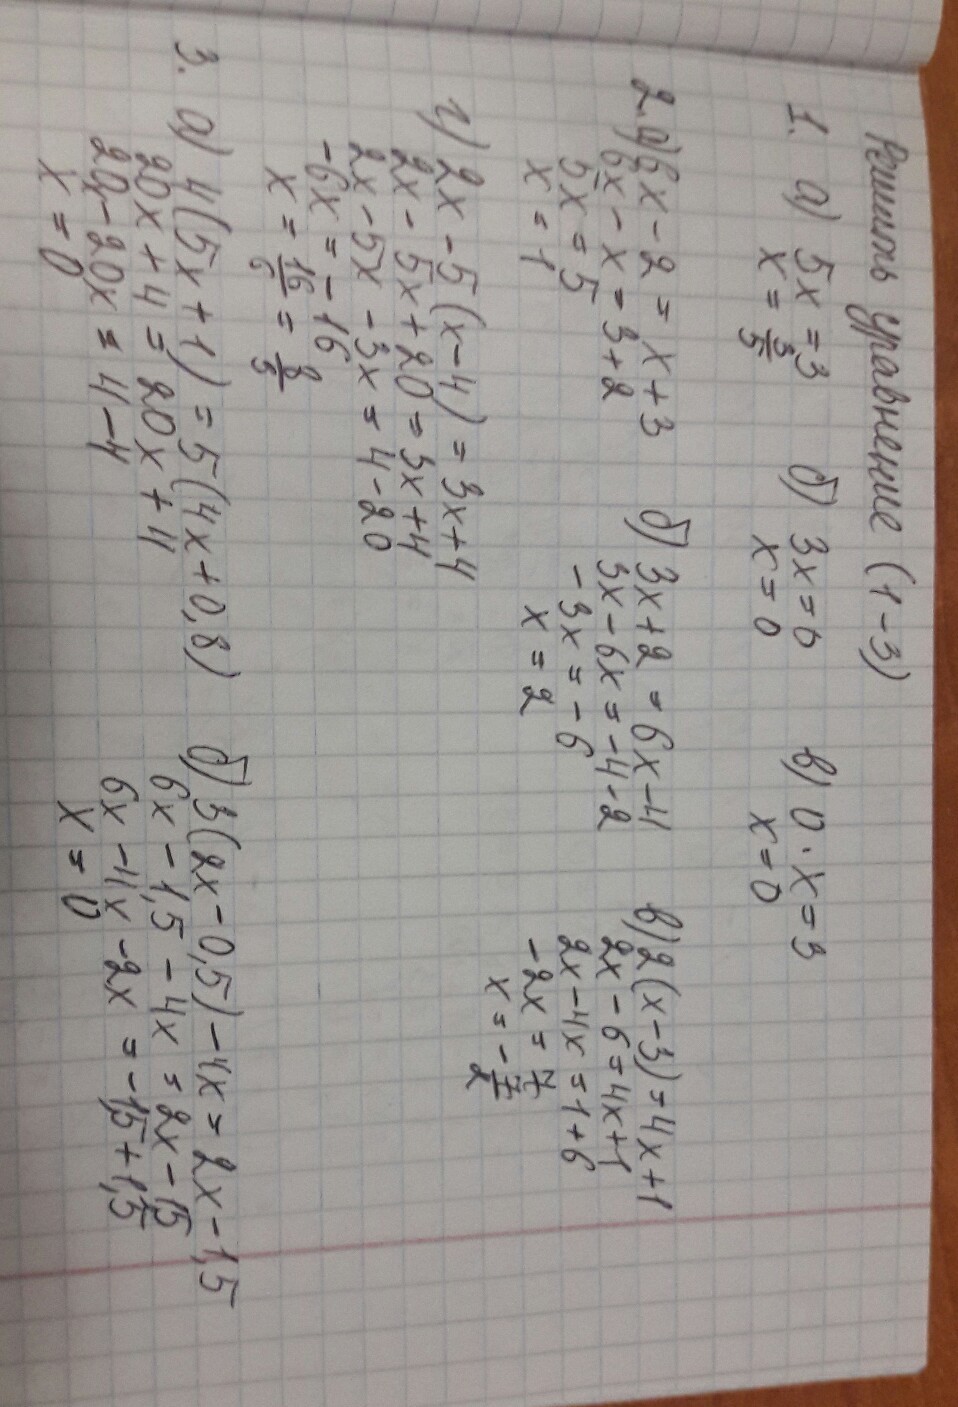 Решить уравнение (1-3)
1. а) 5x = 3 б) 3x = 0 в) 0 · x = 3
x = 3/5 x = 0 x = 0
2. а) 6x - 2 = x + 3 б) 3x + 2 = 6x - 4 в) 2(x - 3) = 4x + 1
6x - x = 3 + 2 3x - 6x = -4 - 2 2x - 6 = 4x + 1
5x = 5 -3x = -6 2x - 4x = 1 + 6
x = 1 x = 2 -2x = 7
x = -7/2
г) 2x - 5(x - 4) = 3x + 4
2x - 5x + 20 = 3x + 4
2x - 5x - 3x = 4 - 20
-6x = -16
x = 16/6 = 8/3
3. а) 4(5x + 1) = 5(4x + 0,8) б) 3(2x - 0,5) - 4x = 2x - 1,5
20x + 4 = 20x + 4 6x - 1,5 - 4x = 2x - 1,5
20x - 20x = 4 - 4 6x - 4x - 2x = -1,5 + 1,5
x = 0 x = 0